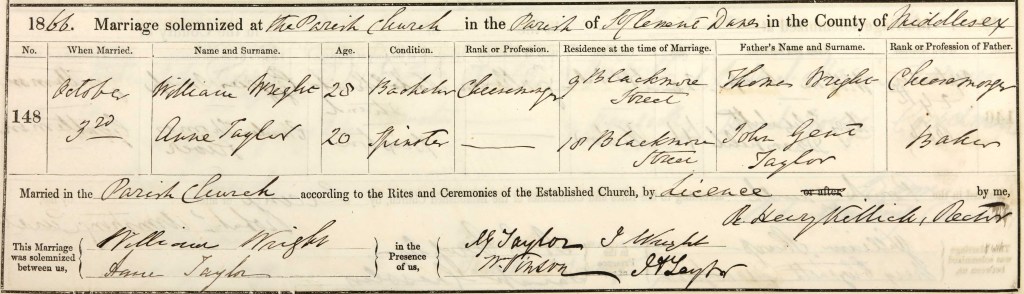 1866. Marriage solemnized at the Parish Church in the Parish of St Clement Danes in the County of Middlesex
No. When Married. Name and Surname. Age. Condition. Rank or Profession. Residence at the time of Marriage. Father's Name and Surname. Rank or Profession of Father.
148 October William Wright 28 Bachelor Cheesemonger 9 Blackmore Street Thomas Wright Cheesemonger
3rd Anne Taylor 20 Spinster — 18 Blackmore Street John Gent Taylor Baker
Married in the Parish Church according to the Rites and Ceremonies of the Established Church, by Licence or after by me,
R. Henry Killick, Rector
This Marriage was solemnized between us,
William Wright
Anne Taylor
in the Presence of us,
Taylor J Wright
W. Vinson Taylor